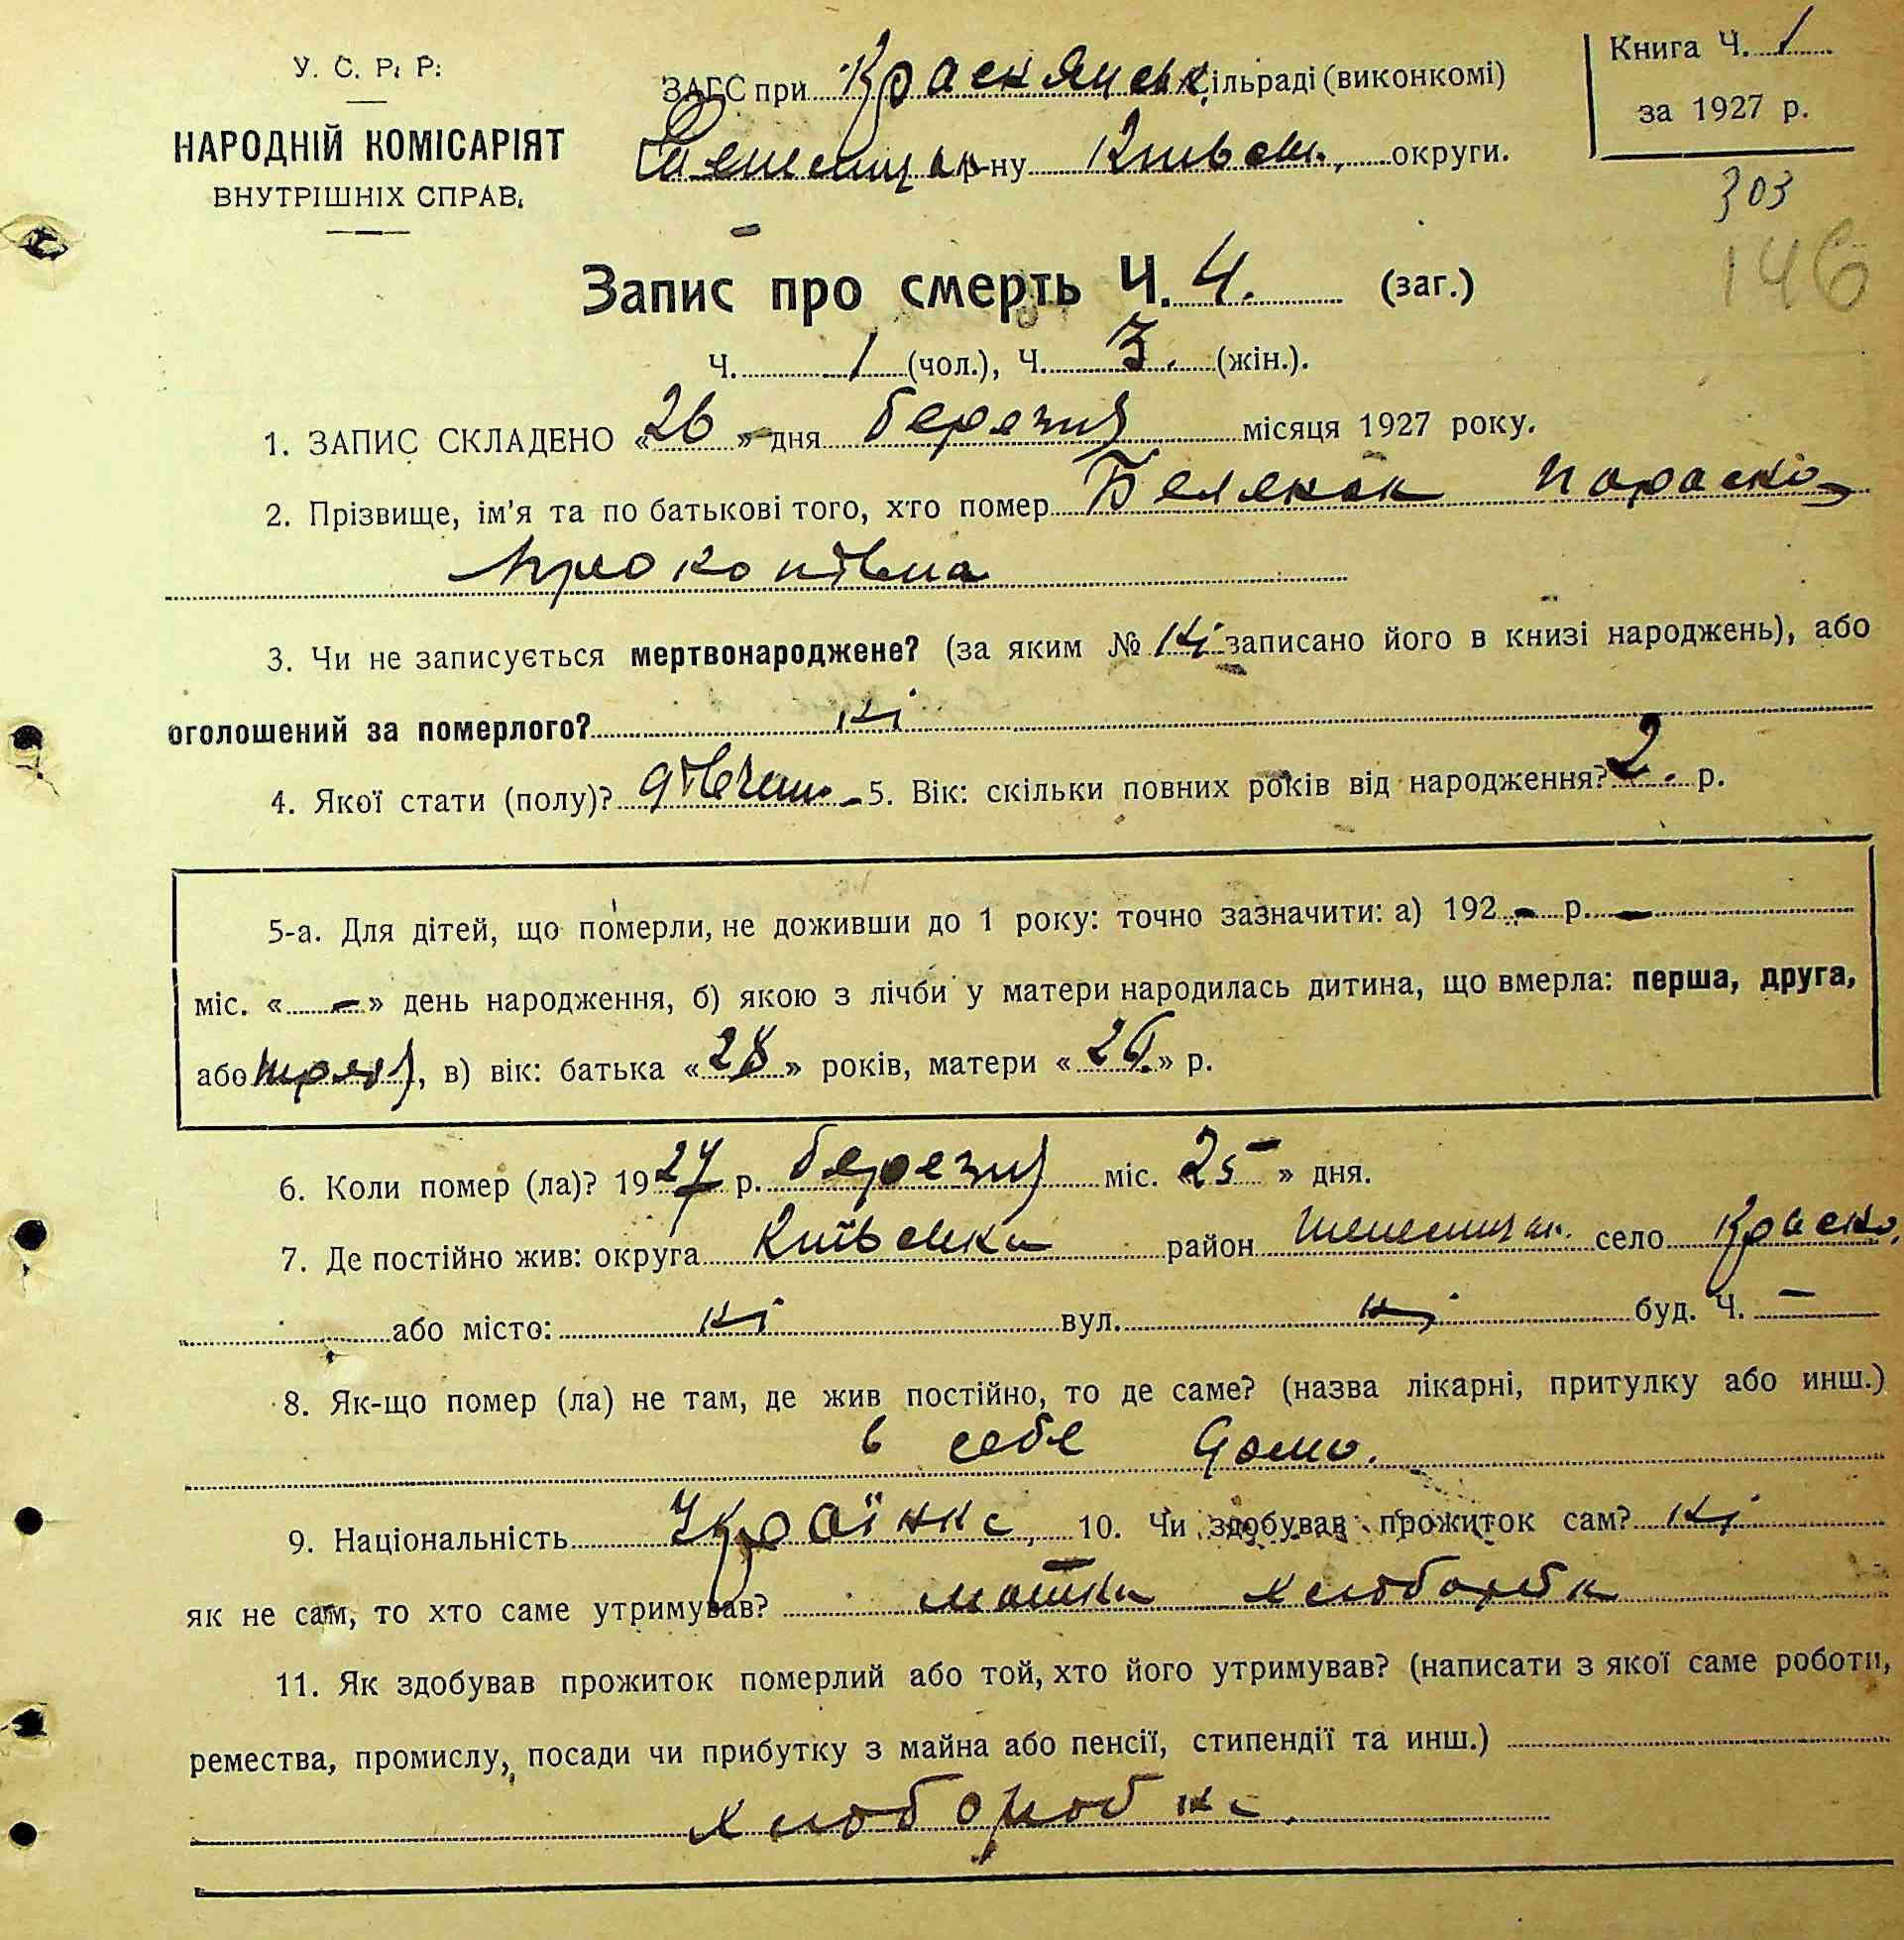 У. С. Р. Р.
ЗАГС при Краснянськ. сільраді (виконкомі)
Книга Ч. 1
за 1927 р.
НАРОДНІЙ КОМІСАРІЯТ
ВНУТРІШНІХ СПРАВ.
р-ну Київськ. округи.
303
146
Запис про смерть Ч. 4. (заг.)
Ч. 1 (чол.), Ч. 3. (жін.).
1. ЗАПИС СКЛАДЕНО «26» дня березня місяця 1927 року.
2. Прізвище, ім'я та по батькові того, хто помер Параска
Прокопівна
3. Чи не записується мертвонароджене? (за яким № ні записано його в книзі народжень), або
оголошений за померлого? ні
4. Якої стати (полу)? 5. Вік: скільки повних років від народження? 2. р.
5-а. Для дітей, що померли, не доживши до 1 року: точно зазначити: а) 192 - р. -
міс. « - » день народження, б) якою з лічби у матери народилась дитина, що вмерла: перша, друга,
або третя, в) вік: батька «28» років, матери «26» р.
6. Коли помер (ла)? 1927 р. березня міс. «25» дня.
7. Де постійно жив: округа Київська район село Красно.
або місто: ні вул. ні буд. Ч. —
8. Як-що помер (ла) не там, де жив постійно, то де саме? (назва лікарні, притулку або инш.)
в себе дома.
9. Національність Українка, 10. Чи здобував прожиток сам? ні
як не сам, то хто саме утримував? матка хлоборобка
11. Як здобував прожиток померлий або той, хто його утримував? (написати з якої саме роботи,
ремества, промислу, посади чи прибутку з майна або пенсії, стипендії та инш.)
хлоборобка.